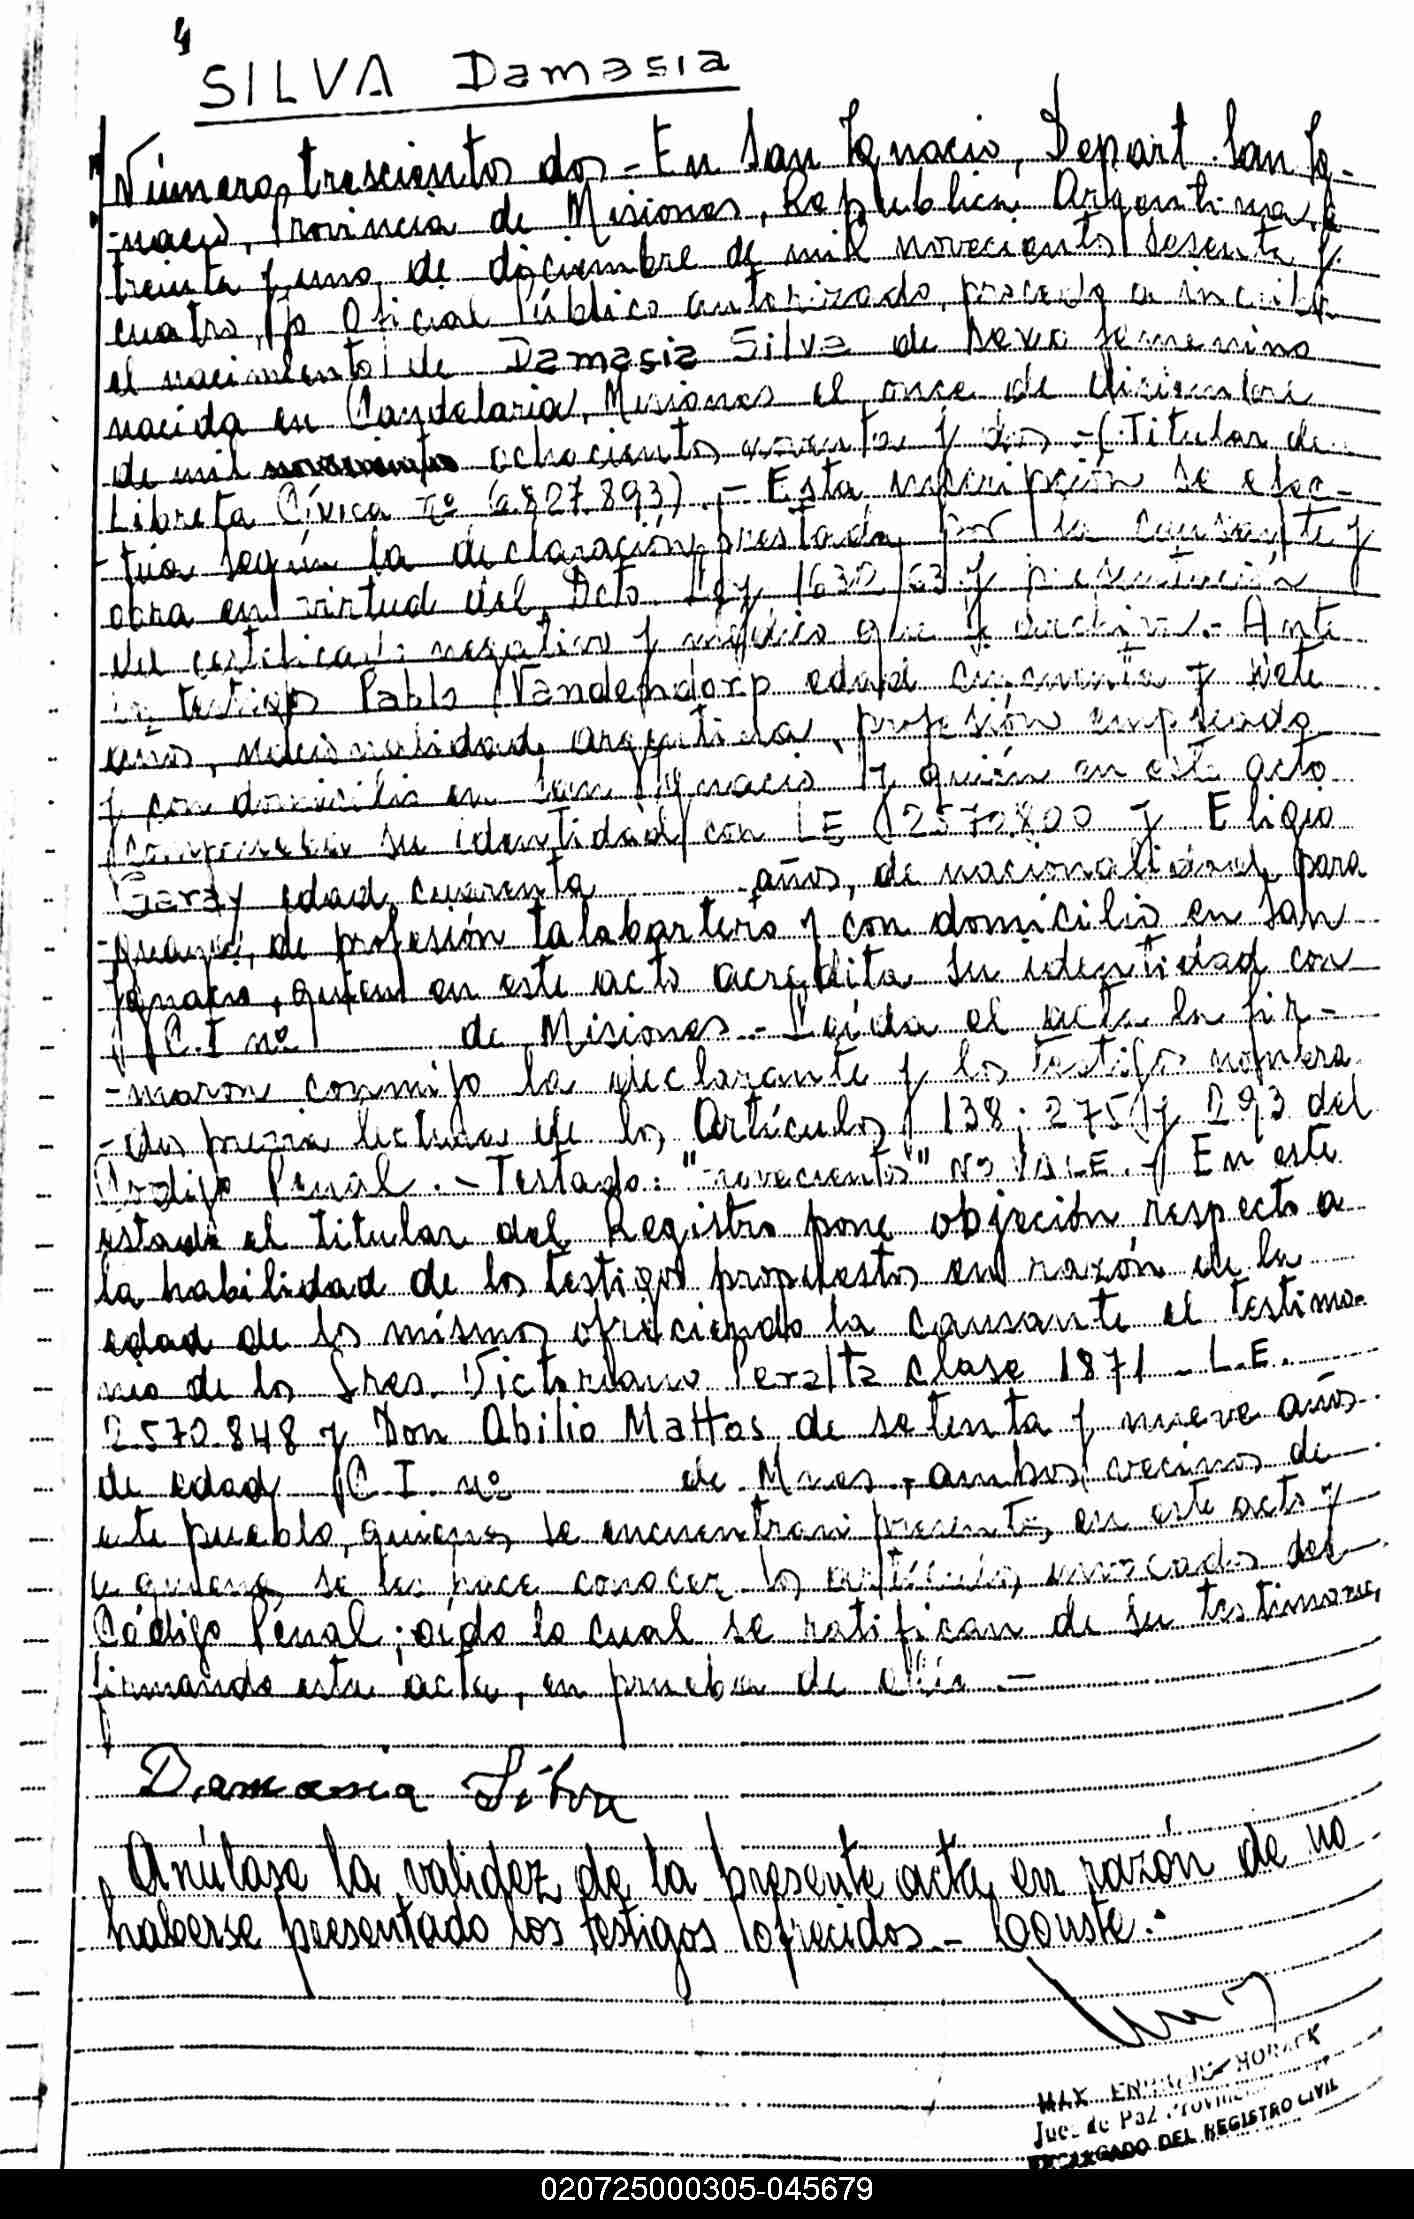 4
SILVA Damasia
Número trescientos dos - En San Ignacio, Depart. San Ig-
-nacio, Provincia de Misiones, República Argentina, a
treinta y uno de diciembre de mil novecientos sesenta y
cuatro, yo Oficial Público autorizado, procedo a inscribir
el nacimiento de Damasia Silva de sexo femenino
nacida en Candelaria, Misiones el once de diciembre
de mil novecientos ochocientos noventa y dos - (Titular de
Libreta Cívica nº 6.827.893). - Esta inscripción se efec-
túa según la declaración prestada por la causante y
obra en virtud del Dcto Ley 1632/63 y presentación
del certificado negativo y médico que se archiva. - Ante
los testigos Pablo Vandendorp edad cincuenta y siete
años, nacionalidad argentina, profesión empleado
y con domicilio en San Ignacio y quién en este acto
comprueba su identidad con LE 2572800 y Eligio
Garay edad cuarenta años, de nacionalidad para
-guaya, de profesión talabartero y con domicilio en San
Ignacio, quien en este acto acredita su identidad con
C.I nº de Misiones - Leída el acta la fir-
-maron conmigo la declarante y los testigos nombra
-dos previa lectura de los Artículos 138; 275 y 293 del
Código Penal. - Testado: "novecientos" NO VALE. - En este
estado el titular del Registro pone objeción respecto a
la habilidad de los testigos propuestos en razón de la
edad de los mismos ofreciendo la causante el testimo-
nio de los Sres. Victoriano Peralta clase 1871 - L.E.
2.572.848 y Don Abilio Mattos de setenta y nueve años
de edad C.I. nº de Mnes, ambos vecinos de
este pueblo, quienes se encuentran presentes en este acto y
a quienes se les hace conocer los artículos invocados del
Código Penal; oído lo cual se ratifican de su testimonio,
firmando esta acta, en prueba de ello -
Damasia Silva
Anúlase la validez de la presente acta en razón de no
haberse presentado los testigos ofrecidos - Conste.-
MAX HORACK
Juez de Paz
ENCARGADO DEL REGISTRO CIVIL
020725000305-045679